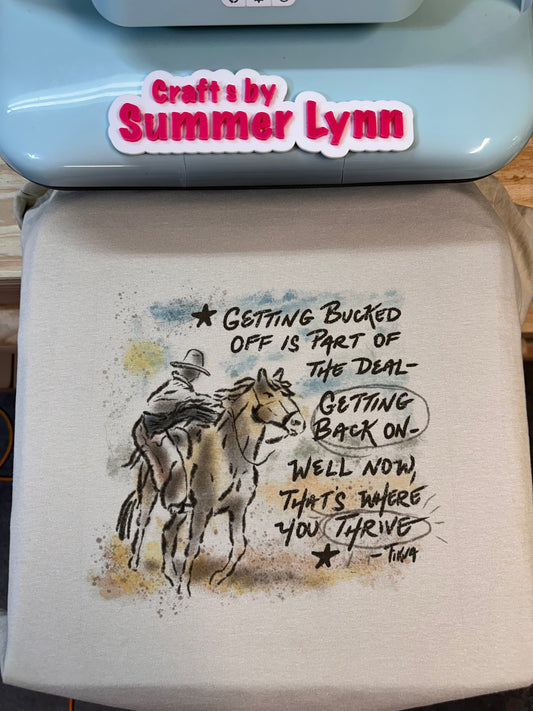 Crafts by
Summer Lynn
GETTING BUCKED
OFF IS PART OF
THE DEAL-
GETTING
BACK ON-
WELL NOW,
THAT'S WHERE
YOU THRIVE